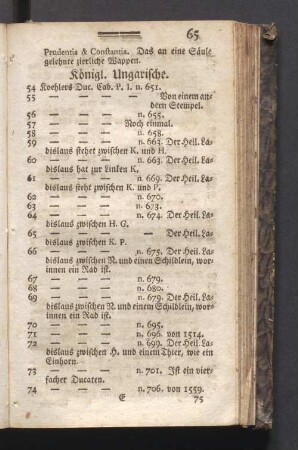 65
Prudentia & Constantia. Das an eine Säule
gelehnte zierliche Wappen.
Königl. Ungarische.
54 Koehlers Duc. Cab. P. I. n. 651.
55 — — — — Von einem an-
dern Stempel.
56 — — — n. 655.
57 — — — Noch einmal.
58 — — — n. 658.
59 — — — n. 663. Der Heil. La-
dislaus stehet zwischen K. und H.
60 — — — n. 663. Der Heil. La-
dislaus hat zur Linken K.
61 — — — n. 669. Der Heil. La-
dislaus steht zwischen K. und P.
62 — — — n. 670.
63 — — — n. 673.
64 — — — n. 674. Der Heil. La-
dislaus zwischen H. G.
65 — — — — Der Heil. La-
dislaus zwischen K. P.
66 — — — n. 675. Der Heil. La-
dislaus zwischen N. und einen Schildlein, wor-
innen ein Rad ist.
67 — — — n. 679.
68 — — — n. 680.
69 — — — n. 679. Der Heil. La-
dislaus zwischen N. und einem Schildlein, wor-
innen ein Rad ist.
70 — — — n. 695.
71 — — — n. 696. von 1514.
72 — — — n. 699. Der Heil. La-
dislaus zwischen H. und einem Thier, wie ein
Einhorn.
73 — — — n. 701. Ist ein vier-
facher Ducaten.
74 — — — n. 706. von 1559.
E 75